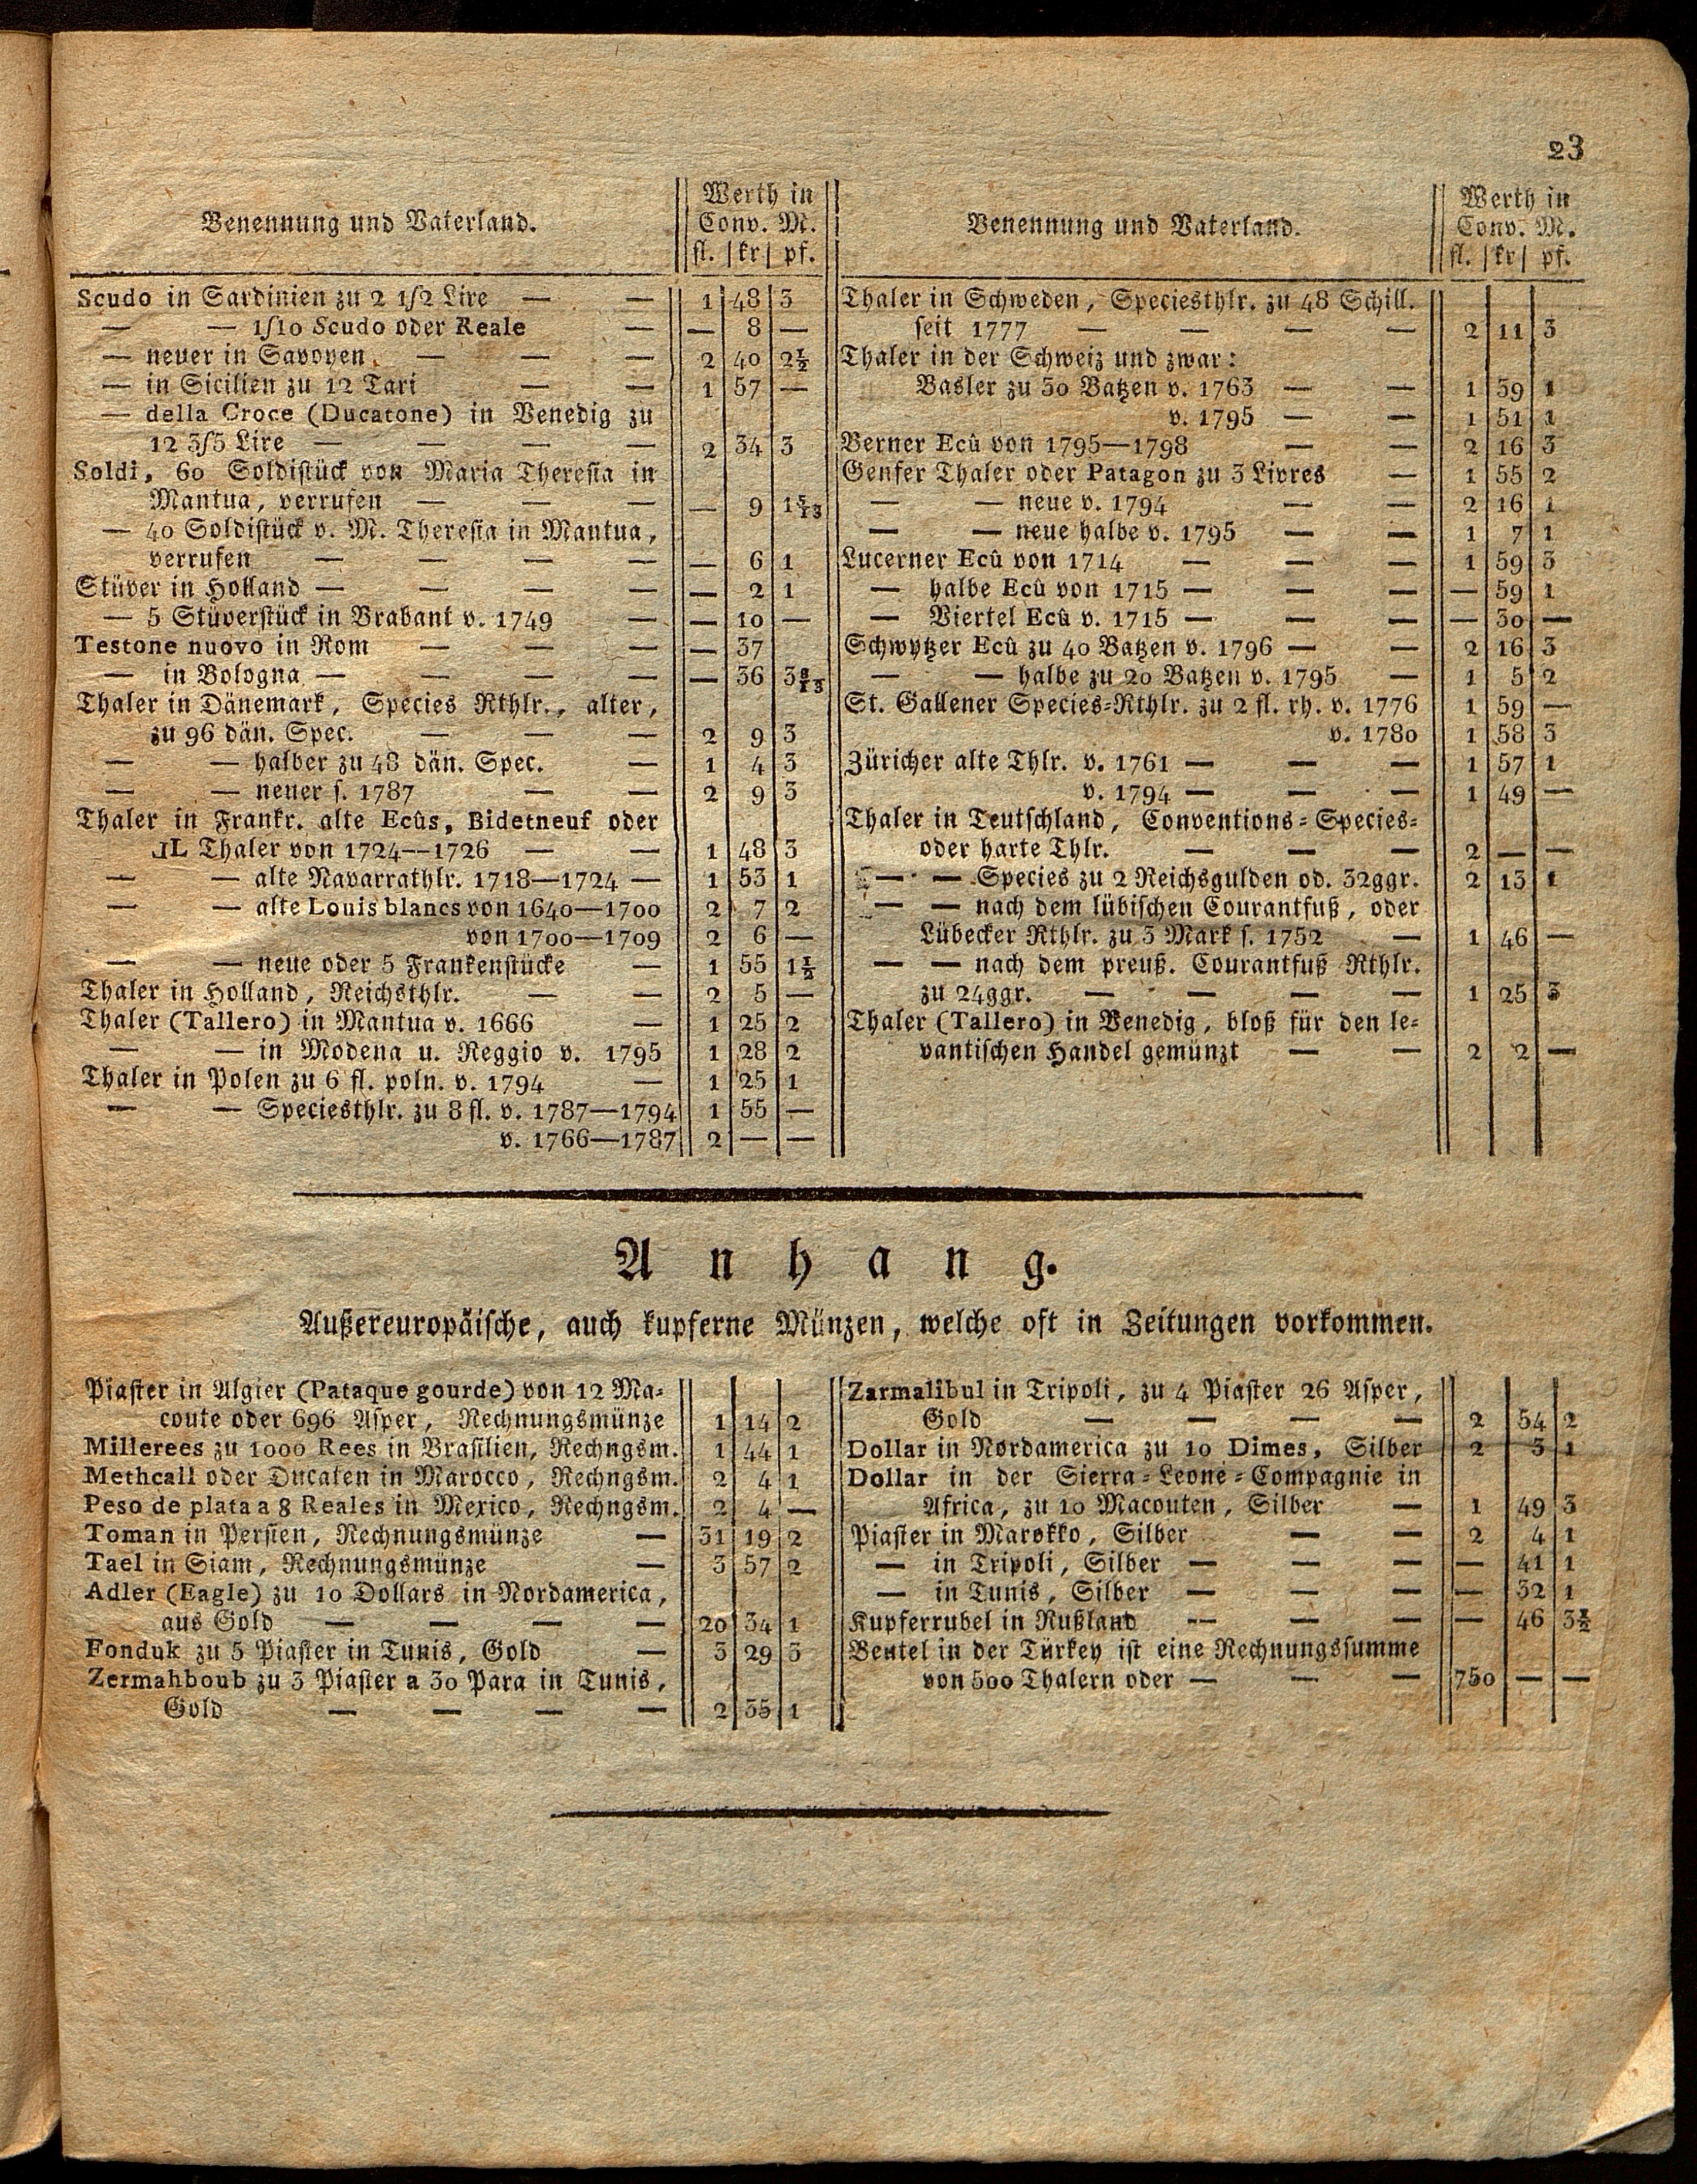 23
Benennung und Vaterland.
Werth in
Conv. M.
fl. | kr | pf.
Scudo in Sardinien zu 2 1/2 Lire — — 1 48 3
— — 1/10 Scudo oder Reale — — 8 —
— neuer in Savoyen — — — 2 40 2½
— in Sicilien zu 12 Tari — — 1 57 —
— della Croce (Ducatone) in Venedig zu
12 3/5 Lire — — — — 2 34 3
Soldi, 60 Soldistück von Maria Theresia in
Mantua, verrufen — — — — 9 1 5/13
— 40 Soldistück v. M. Theresia in Mantua,
verrufen — — — — — 6 1
Stüver in Holland — — — — — 2 1
— 5 Stüverstück in Brabant v. 1749 — — 10 —
Testone nuovo in Rom — — — — 37
— in Bologna — — — — — 36 3 8/13
Thaler in Dänemark, Species Rthlr., alter,
zu 96 dän. Spec. — — — 2 9 3
— — halber zu 48 dän. Spec. — 1 4 3
— — neuer s. 1787 — — 2 9 3
Thaler in Frankr. alte Ecûs, Bidetneuf oder
JL Thaler von 1724—1726 — — 1 48 3
— — alte Navarrathlr. 1718—1724 — 1 53 1
— — alte Louis blancs von 1640—1700 2 7 2
von 1700—1709 2 6 —
— — neue oder 5 Frankenstücke — 1 55 1½
Thaler in Holland, Reichsthlr. — — 2 5 —
Thaler (Tallero) in Mantua v. 1666 — 1 25 2
— — in Modena u. Reggio v. 1795 1 28 2
Thaler in Polen zu 6 fl. poln. v. 1794 — 1 25 1
— — Speciesthlr. zu 8 fl. v. 1787—1794 1 55 —
v. 1766—1787 2 — —
Benennung und Vaterland.
Werth in
Conv. M.
fl. | kr | pf.
Thaler in Schweden, Speciesthlr. zu 48 Schill.
seit 1777 — — — — 2 11 3
Thaler in der Schweiz und zwar:
Basler zu 30 Batzen v. 1763 — — 1 59 1
v. 1795 — — 1 51 1
Berner Ecû von 1795—1798 — — 2 16 3
Genfer Thaler oder Patagon zu 3 Livres — 1 55 2
— — neue v. 1794 — — 2 16 1
— — neue halbe v. 1795 — — 1 7 1
Lucerner Ecû von 1714 — — — 1 59 3
— halbe Ecû von 1715 — — — — 59 1
— Viertel Ecû v. 1715 — — — — 30 —
Schwytzer Ecû zu 40 Batzen v. 1796 — — 2 16 3
— — halbe zu 20 Batzen v. 1795 — 1 5 2
St. Gallener Species-Rthlr. zu 2 fl. rh. v. 1776 1 59 —
v. 1780 1 58 3
Züricher alte Thlr. v. 1761 — — — 1 57 1
v. 1794 — — — 1 49 —
Thaler in Teutschland, Conventions-Species-
oder harte Thlr. — — — 2 — —
— — Species zu 2 Reichsgulden od. 32ggr. 2 13 1
— — nach dem lübischen Courantfuß, oder
Lübecker Rthlr. zu 3 Mark s. 1752 — 1 46 —
— — nach dem preuß. Courantfuß Rthlr.
zu 24ggr. — — — — 1 25 3
Thaler (Tallero) in Venedig, bloß für den le-
vantischen Handel gemünzt — — 2 2 —
Anhang.
Außereuropäische, auch kupferne Münzen, welche oft in Zeitungen vorkommen.
Piaster in Algier (Pataque gourde) von 12 Ma-
coute oder 696 Asper, Rechnungsmünze 1 14 2
Millerees zu 1000 Rees in Brasilien, Rechngsm. 1 44 1
Methcall oder Ducaten in Marocco, Rechngsm. 2 4 1
Peso de plata a 8 Reales in Mexico, Rechngsm. 2 4 —
Toman in Persien, Rechnungsmünze — 31 19 2
Tael in Siam, Rechnungsmünze — 3 57 2
Adler (Eagle) zu 10 Dollars in Nordamerica,
aus Gold — — — — 20 34 1
Fonduk zu 5 Piaster in Tunis, Gold — 3 29 3
Zermahboub zu 3 Piaster a 30 Para in Tunis,
Gold — — — — 2 35 1
Zarmalibul in Tripoli, zu 4 Piaster 26 Asper,
Gold — — — — 2 54 2
Dollar in Nordamerica zu 10 Dimes, Silber 2 3 1
Dollar in der Sierra-Leone-Compagnie in
Africa, zu 10 Macouten, Silber — 1 49 3
Piaster in Marokko, Silber — — 2 4 1
— in Tripoli, Silber — — — — 41 1
— in Tunis, Silber — — — — 32 1
Kupferrubel in Rußland — — — — 46 3½
Beutel in der Türkey ist eine Rechnungssumme
von 500 Thalern oder — — — 750 — —